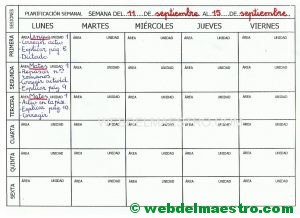 SESIONES PLANIFICACIÓN SEMANAL SEMANA DEL 11 DE septiembre AL 15 DE septiembre
LUNES MARTES MIÉRCOLES JUEVES VIERNES
PRIMERA
ÁREA Lengua UNIDAD 1 ÁREA UNIDAD ÁREA UNIDAD ÁREA UNIDAD ÁREA UNIDAD
Corregir activ
Explicar pág 8
Dictado
SEGUNDA
ÁREA Mates UNIDAD 1 ÁREA UNIDAD ÁREA UNIDAD ÁREA UNIDAD ÁREA UNIDAD
Repasar nº
romanos
Corregir activid
Explicar pág 9
TERCERA
ÁREA Mates UNIDAD 1 ÁREA UNIDAD ÁREA UNIDAD ÁREA UNIDAD ÁREA UNIDAD
Activ en la piza
Explicar pág 10
Corregir
CUARTA
ÁREA UNIDAD ÁREA UNIDAD ÁREA UNIDAD ÁREA UNIDAD ÁREA UNIDAD
QUINTA
ÁREA UNIDAD ÁREA UNIDAD ÁREA UNIDAD ÁREA UNIDAD ÁREA UNIDAD
SEXTA
ÁREA UNIDAD ÁREA UNIDAD ÁREA UNIDAD ÁREA UNIDAD ÁREA UNIDAD
WEBDELMAESTRO.COM
© webdelmaestro.com